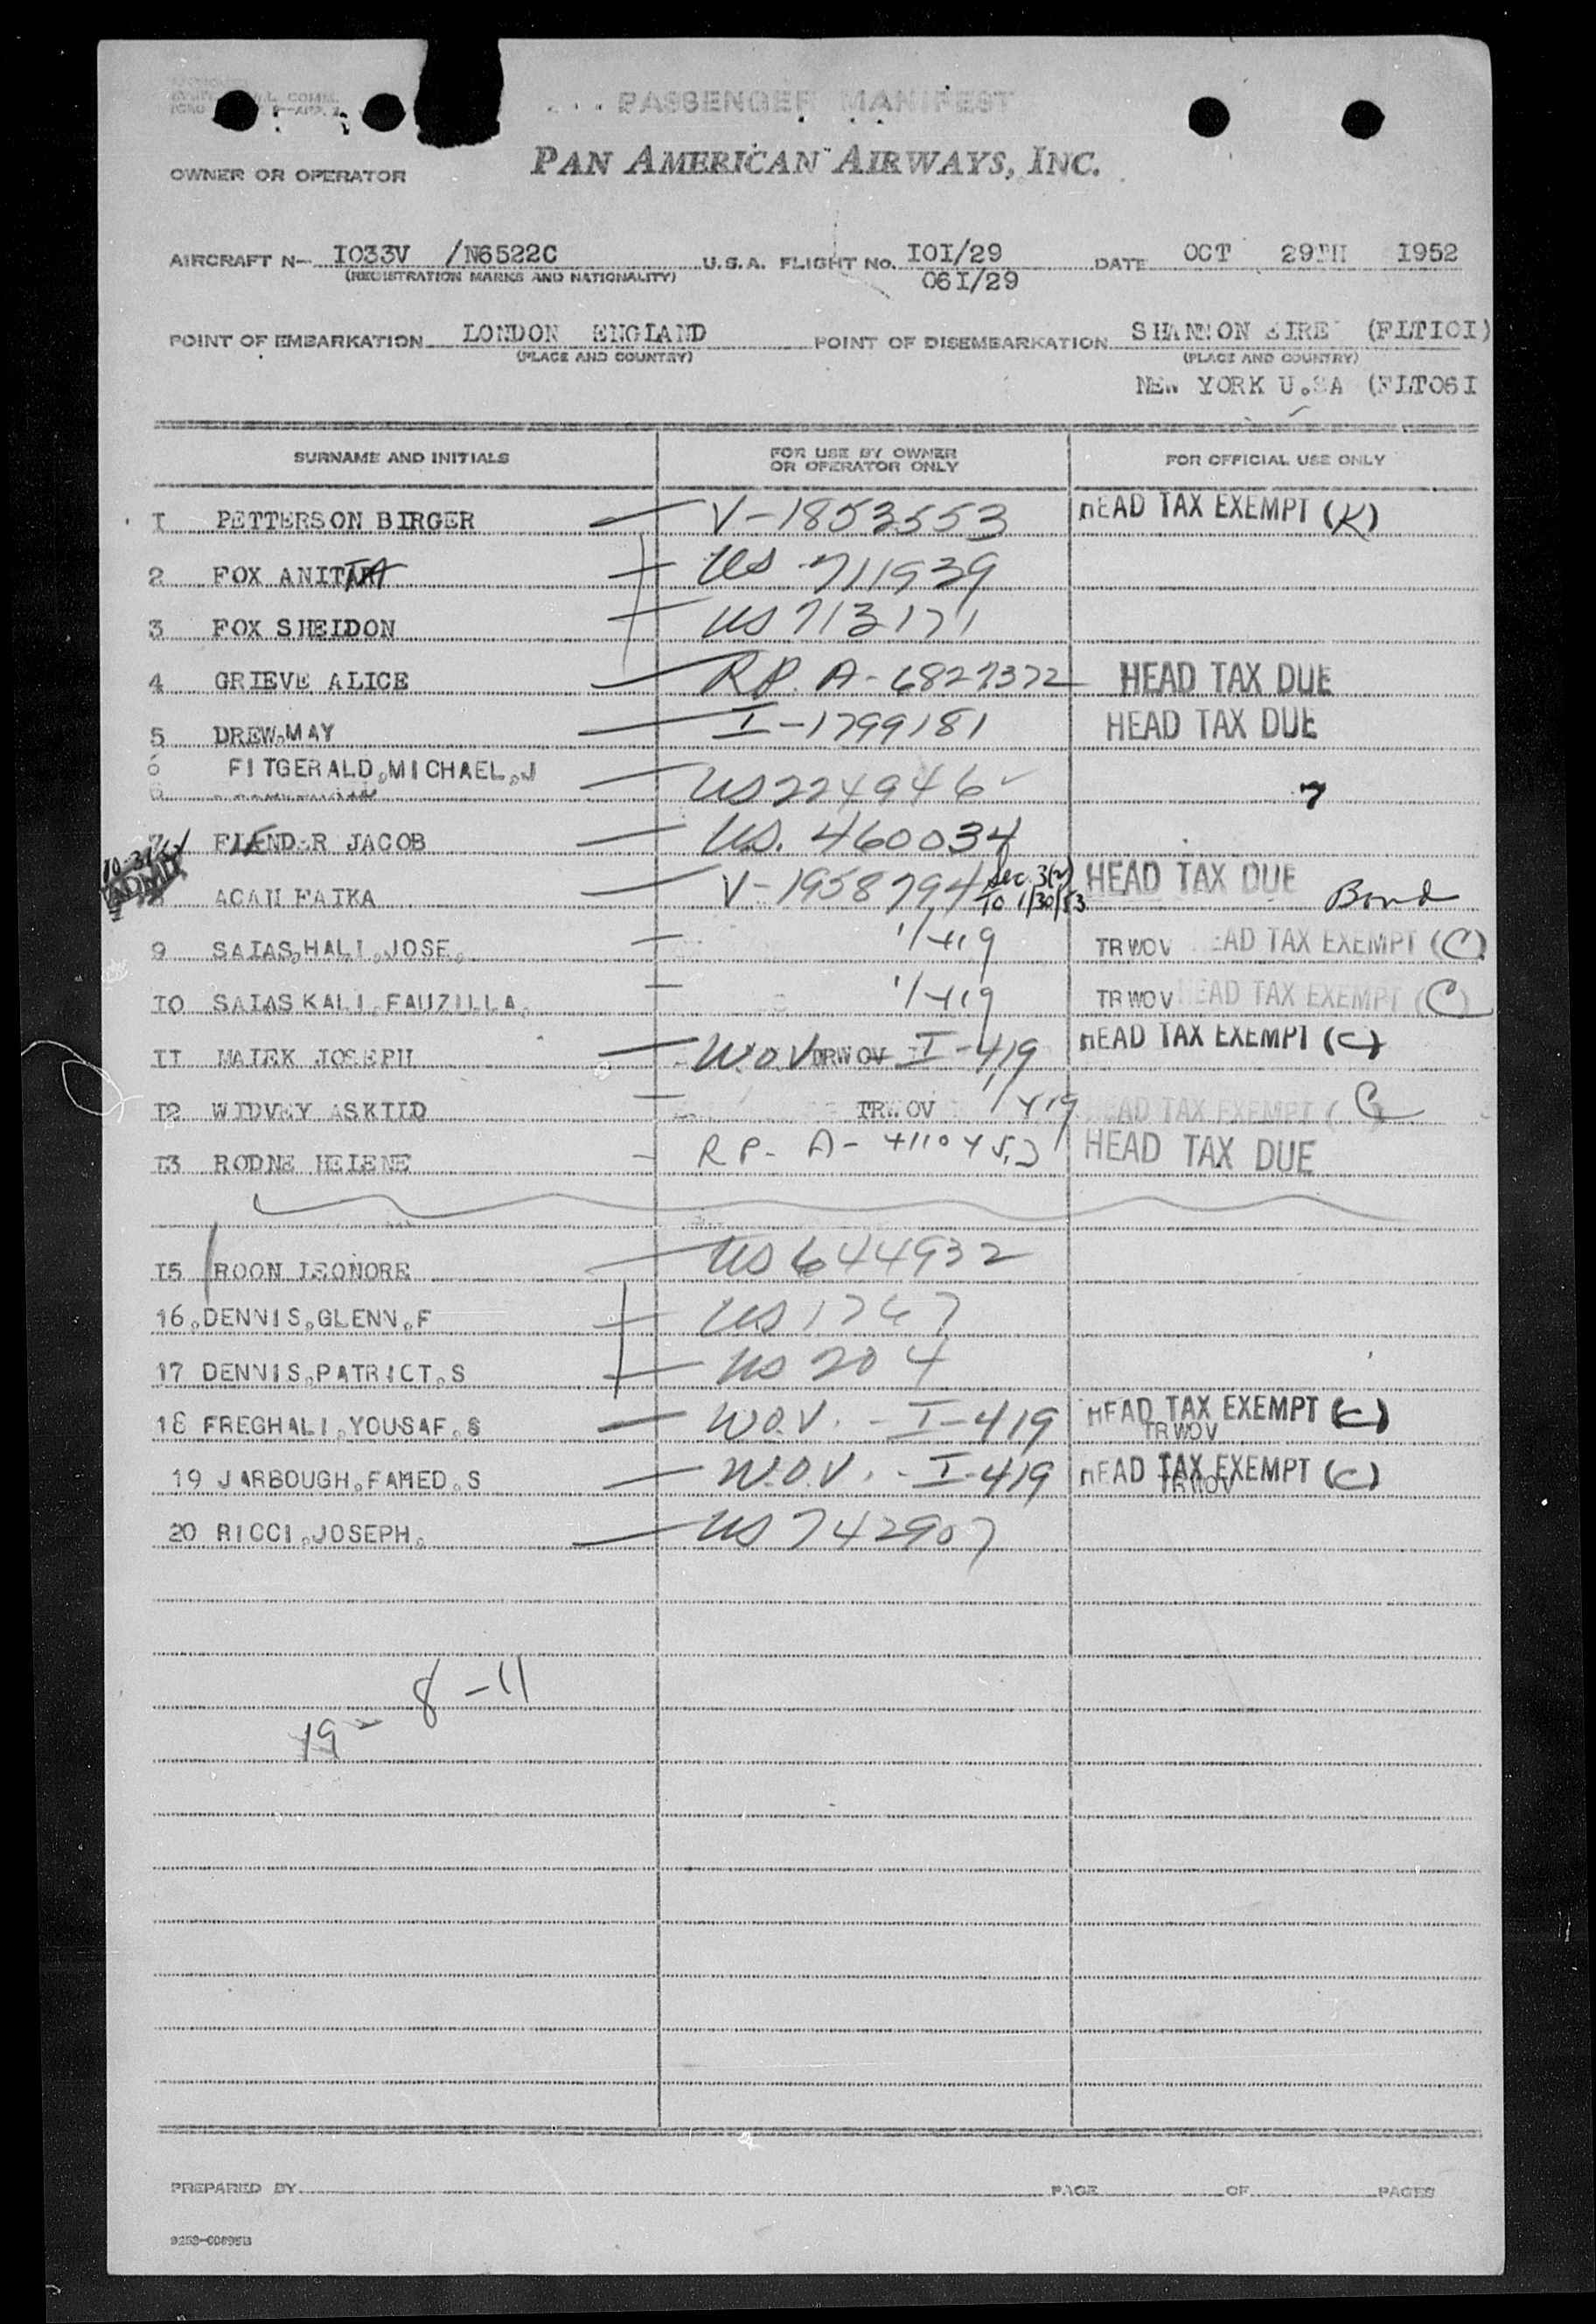 PASSENGER MANIFEST
OWNER OR OPERATOR PAN AMERICAN AIRWAYS, INC.
AIRCRAFT N- I033V /N6522C U.S.A. FLIGHT No. I0I/29 DATE OCT 29TH I952
(REGISTRATION MARKS AND NATIONALITY) 06I/29
POINT OF EMBARKATION LONDON ENGLAND POINT OF DISEMBARKATION SHANNON EIRE (FLTI0I)
(PLACE AND COUNTRY) (PLACE AND COUNTRY)
NEW YORK U.SA (FLT06I
SURNAME AND INITIALS FOR USE BY OWNER OR OPERATOR ONLY FOR OFFICIAL USE ONLY
I PETTERSON BIRGER V-1853553 HEAD TAX EXEMPT (K)
2 FOX ANITA US 711939
3 FOX SHELDON US 713171
4 GRIEVE ALICE RP. A-6827372 HEAD TAX DUE
5 DREW.MAY I-1799181 HEAD TAX DUE
6 FITGERALD.MICHAEL.J US 224946
7 JACOB US. 460034
ADMD
ACAH FAIKA V-1958794 Sec. 3(2) TO 1/30/53 HEAD TAX DUE Bond
9 SAIAS.HALI.JOSE. 1/419 TRWOV HEAD TAX EXEMPT (C)
I0 SAIAS KALI.FAUZILLA. 1/419 TRWOV HEAD TAX EXEMPT (C)
II MALEK JOSEPH W.O.V TRWOV I-419 HEAD TAX EXEMPT (C)
I2 WIDVEY ASKILD TRWOV 1/419 HEAD TAX EXEMPT (C)
I3 RODNE HELENE RP- A- HEAD TAX DUE
I5 ROON LEONORE US 644932
16.DENNIS.GLENN.F US 1767
17 DENNIS.PATRICT.S US 204
18 FREGHALI.YOUSAF.S W.O.V. - I-419 HEAD TAX EXEMPT (C)
TRWOV
19 JARBOUGH.FAMED.S W.O.V. - I-419 HEAD TAX EXEMPT (C)
TRWOV
20 RICCI.JOSEPH. US 742907
8-11
19
PREPARED BY PAGE OF PAGES